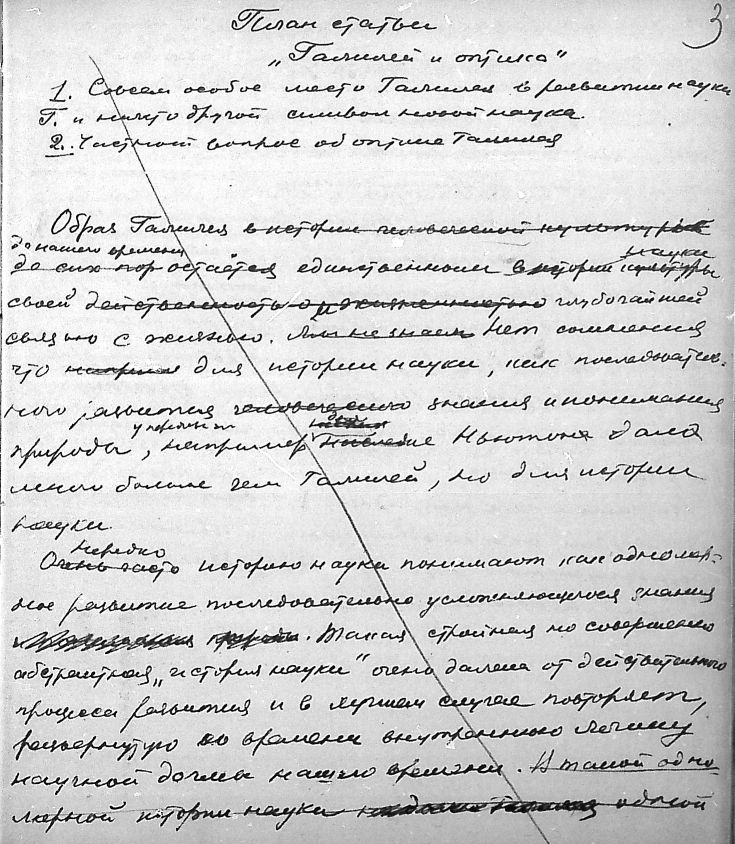 3
План статьи
„Галилей и оптика"
1. Совсем особое место Галилея в развитии науки
Г. и никто другой символ новой науки.
2. Частный вопрос об оптике Галилея
Образ Галилея в истории человеческой культуры
до нашего времени
до сих пор остаётся единственным в истории культуры науки
своей действенностью и жизненностью глубочайшей
связью с жизнью. Мы не знаем Нет сомнения
что для истории науки, как последователь-
ного развития человеческого знания и понимания
природы, например наследие Ньютона дала
много больше чем Галилей, но для истории
науки
нередко
Очень часто историю науки понимают как одномер-
ное развитие последовательно усложняющегося знания
Такая стройная но совершенно
абстрактная „история науки" очень далека от действительного
процесса развития и в лучшем случае повторяет,
развернутую во времени внутреннюю логику
научной догмы нашего времени. В такой одно-
мерной истории науки одной